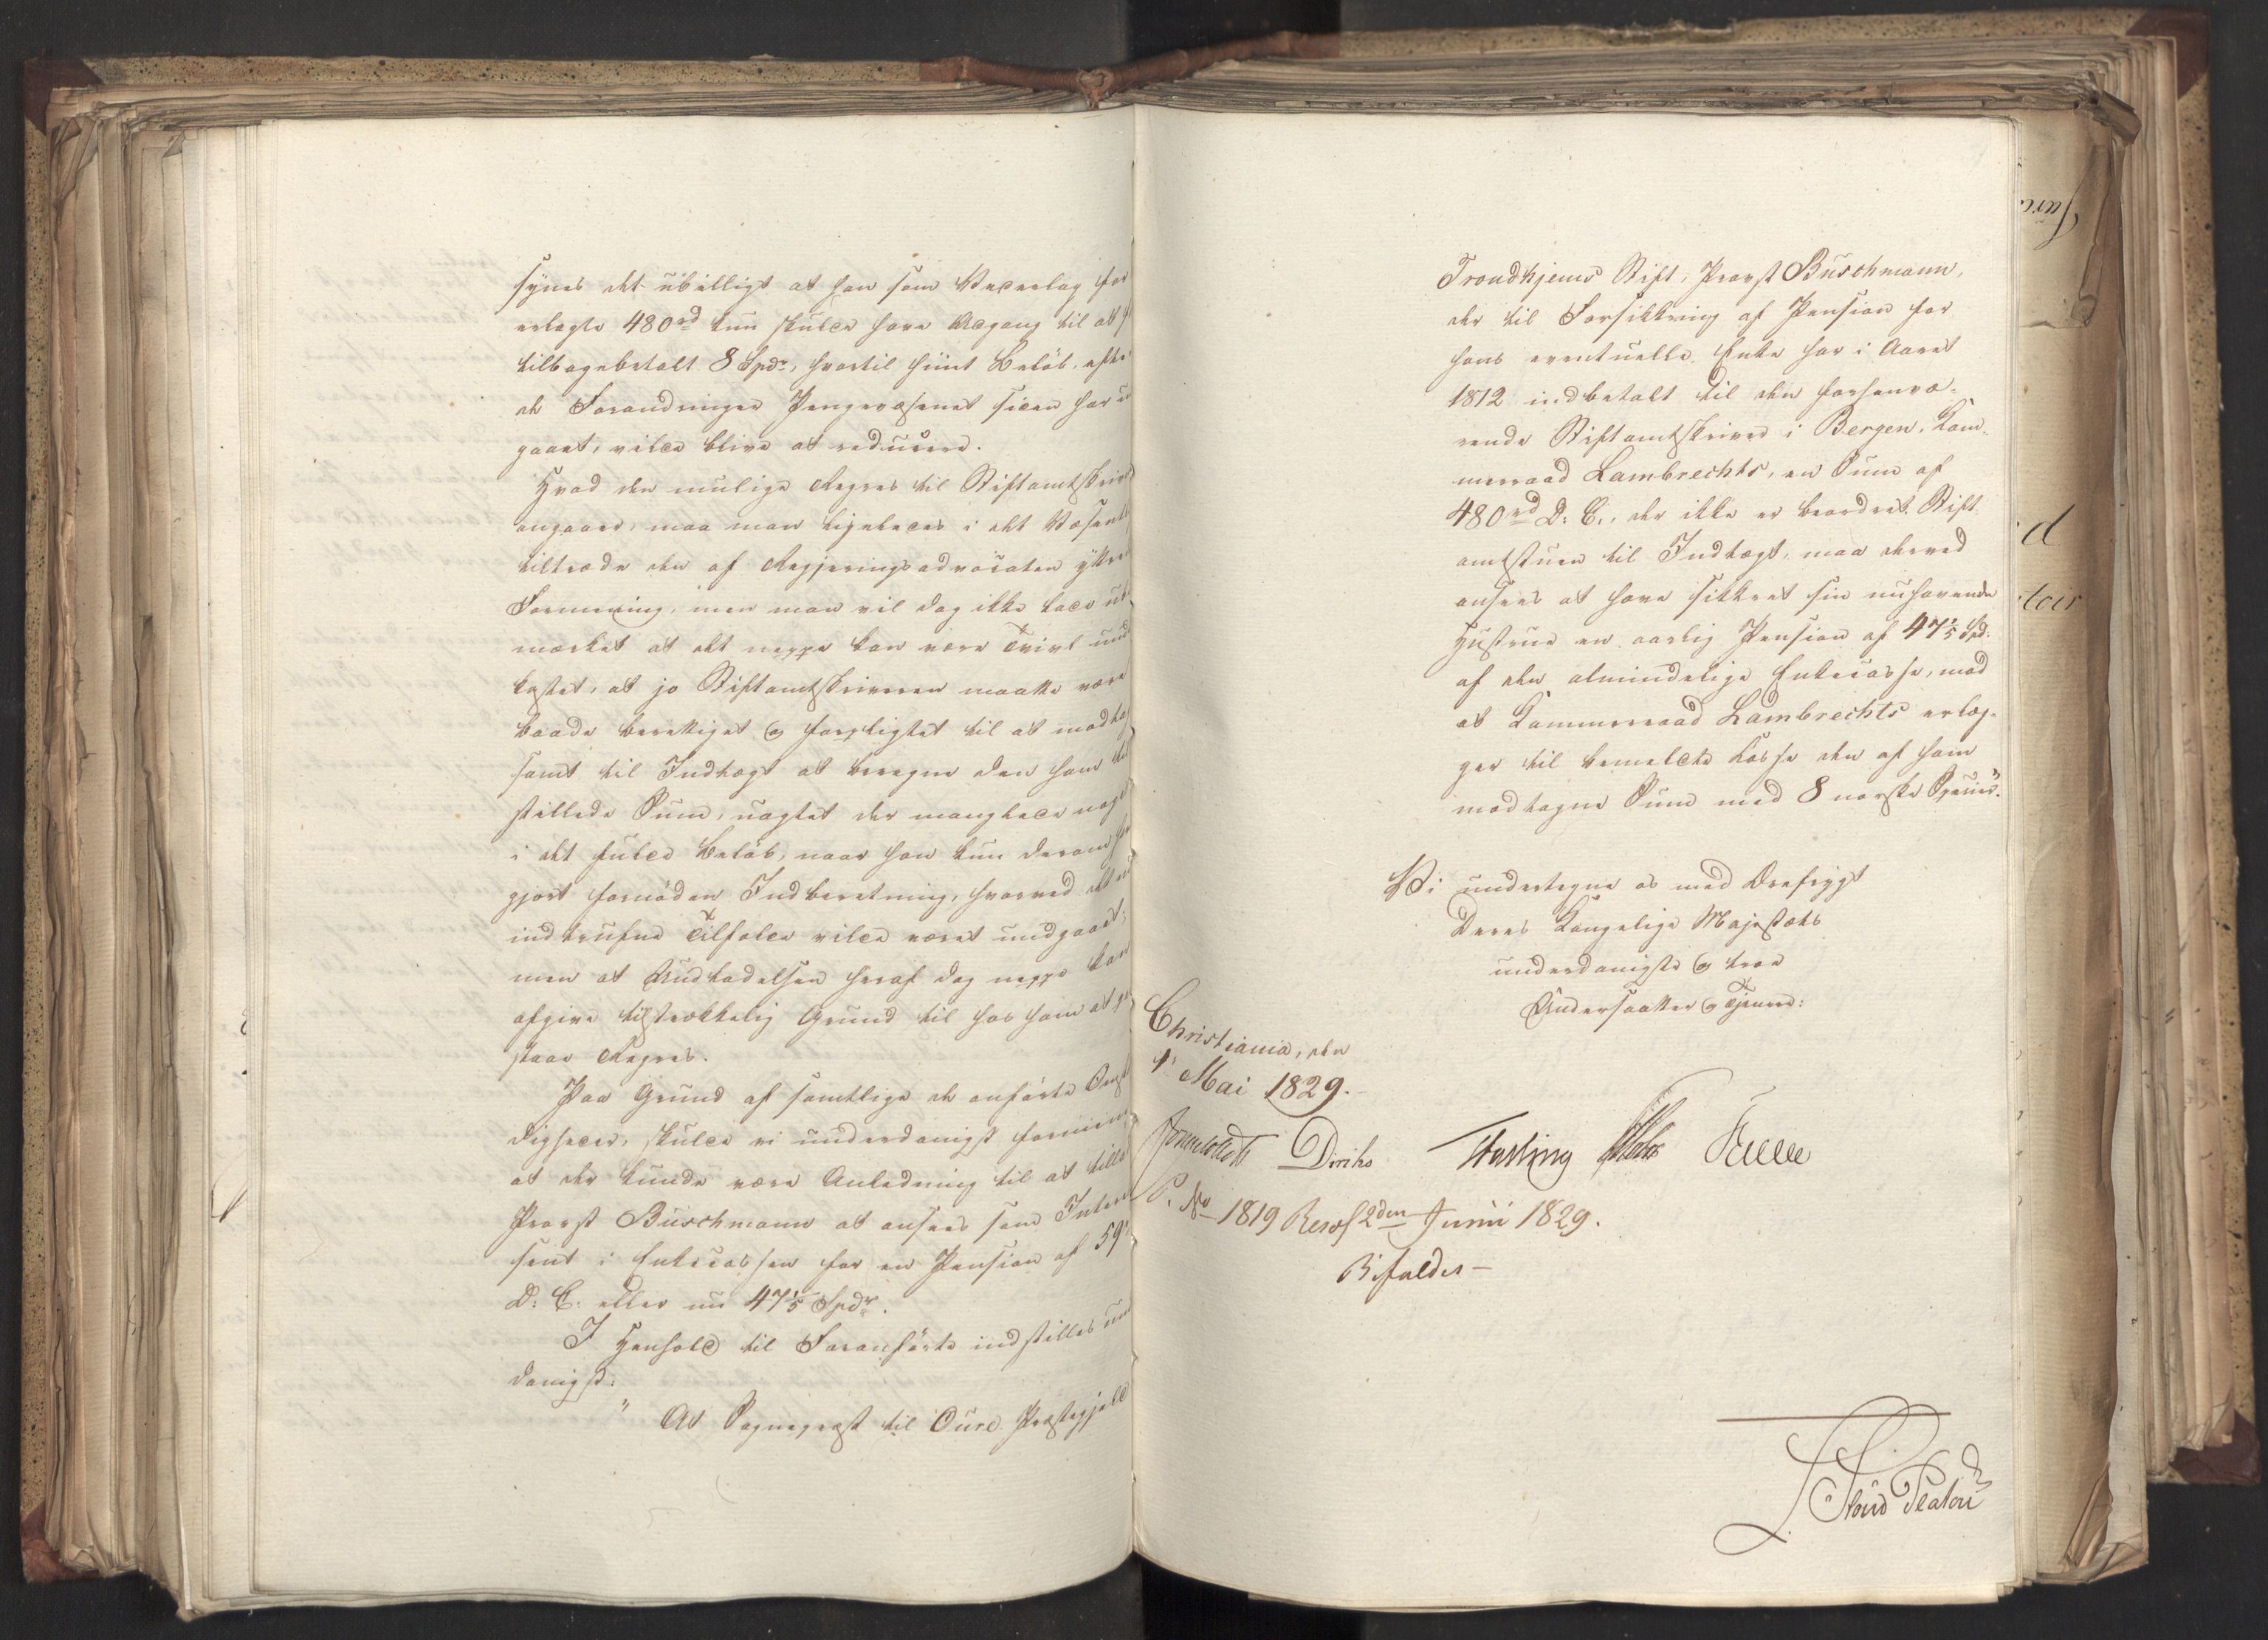 synes det ubilligt at han som Vederlag for
erlagte 480 rd kun skulde have Adgang til at f
tilbagebetalt 8 Spdr, hvortil hiint Beløb, efter
de Forandringer Pengevæsenet siden har u
gaaet, vilde blive at reducere.
Hvad den mulige Regres til Stiftamtskriv
angaaer, maa man ligeledes i det Væsentl
tiltræde den af Regjeringsadvocaten yttre
Formening, men man vil dog ikke lade ube
mærket at det neppe kan være Tvivl und
kastet, at jo Stiftamtskriveren maatte være
baade berettiget og forpligtet til at modtag
samt til Indtægt at beregne den ham til
stillede Sum, uagtet der manglede noge
i det fulde Beløb, naar han kun derom ha
gjort fornøden Indberetning, hvorved det nu
indtrufne Tilfælde vilde været undgaaet;
men at Undladelsen heraf dog neppe kan
afgive tilstrækkelig Grund til hos ham at paa
staae Regres.
Paa Grund af samtlige de anførte Omst
digheder, skulde vi underdanigst formene,
at der kunde være Anledning til at tilla
Provst Buschmann at ansees som Intere
sent i Enkecassen for en Pension af 59
D: C: eller nu 47 1/5 Spdr.
I Henhold til Foranførte indstilles un
danigst:
" At Sognepræst til Oure Præstegjeld
Trondhjems Stift, Provst Buschmann,
der til Forsikkring af Pension for
hans eventuelle Enke har i Aaret
1812 indbetalt til den forhenvæ-
rende Stiftamtskriver i Bergen, Kam-
merraad Lambrechts, en Sum af
480 rd D: C., der ikke er beordret Stift-
amtstuen til Indtægt, maa derved
ansees at have sikkret sin nuhavende
Hustrue en aarlig Pension af 47 1/5 Spd.
af den almindelige Enkecasse, mod
at Kammerraad Lambrechts erlæg-
ger til bemeldte Kasse den af ham
modtagne Sum med 8 norske Species".
Vi undertegne os med Drefrygt
Deres Kongelige Majestæts
underdanigste og troe
Undersaatter og Tjenere:
Christiania, den
1' Mai 1829.
Diriks
P. No 1819 Resol 2den Junii 1829.
Bifaldes -